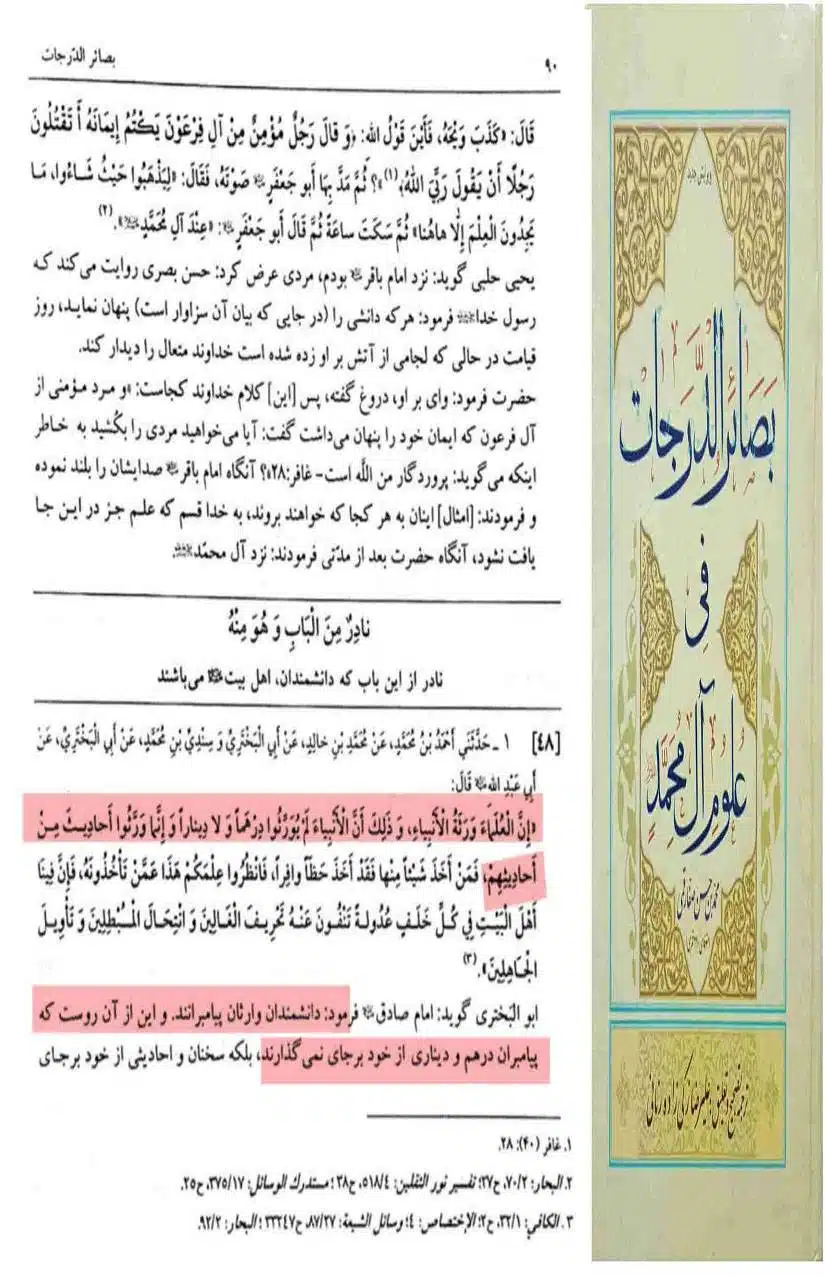 بصائر الدّرجات
۹۰
قَالَ: «كَذَبَ وَيْحَهُ، فَأَيْنَ قَوْلُ الله: ﴿وَ قالَ رَجُلٌ مُؤْمِنٌ مِنْ آلِ فِرْعَوْنَ يَكْتُمُ إِيمَانَهُ أَ تَقْتُلُونَ
رَجُلًا أَنْ يَقُولَ رَبِّيَ اللهُ﴾(۱)»؟ ثُمَّ مَدَّ بِهَا أَبو جَعْفَرٍ صَوْتَهُ، فَقَالَ: «لِيَذْهَبُوا حَيْثُ شَاءُوا، مَا
يَجِدُونَ الْعِلْمَ إِلَّا هاهُنا» ثُمَّ سَكَتَ ساعَةً ثُمَّ قَالَ أَبو جَعْفَرٍ: «عِنْدَ آلِ مُحَمَّدٍ».(۲)
یحیی حلبی گوید: نزد امام باقر بودم، مردی عرض کرد: حسن بصری روایت می‌کند که
رسول خدا فرمود: هرکه دانشی را (در جایی که بیان آن سزاوار است) پنهان نماید، روز
قیامت در حالی که لجامی از آتش بر او زده شده است خداوند متعال را دیدار کند.
حضرت فرمود: وای بر او، دروغ گفته، پس [این] کلام خداوند کجاست: «و مرد مؤمنی از
آل فرعون که ایمان خود را پنهان می‌داشت گفت: آیا می‌خواهید مردی را بکُشید به خاطر
اینکه می‌گوید: پروردگار من اللَّه است- غافر:۲۸»؟ آنگاه امام باقر صدایشان را بلند نموده
و فرمودند: [امثال] اینان به هر کجا که خواهند بروند، به خدا قسم که علم جز در این جا
یافت نشود، آنگاه حضرت بعد از مدّتی فرمودند: نزد آل محمّد.
نادِرٌ مِنَ الْبَابِ وَ هُوَ مِنْهُ
نادر از این باب که دانشمندان، اهل بیت می‌باشند
[٤٨] ۱ ـ حَدَّثَنِي أَحْمَدُ بْنُ مُحَمَّدٍ، عَنْ مُحَمَّدِ بْنِ خالِدٍ، عَنْ أَبِي الْبَخْتَرِيِّ وَ سِنْدِيِّ بْنِ مُحَمَّدٍ، عَنْ أَبِي الْبَخْتَرِيِّ، عَنْ
أَبِي عَبْدِ الله قَالَ:
«إِنَّ الْعُلَمَاءَ وَرَثَةُ الْأَنْبِيَاءِ، وَ ذَلِكَ أَنَّ الْأَنْبِيَاءَ لَمْ يُوَرِّثُوا دِرْهَماً وَ لا دِيناراً وَ إِنَّما وَرَّثُوا أَحادِيثَ مِنْ
أَحادِيثِهِمْ، فَمَنْ أَخَذَ شَيْئاً مِنْها فَقَدْ أَخَذَ حَظّاً وافِراً، فَانْظُرُوا عِلْمَكُمْ هَذا عَمَّنْ تَأْخُذُونَهُ، فَإِنَّ فِينَا
أَهْلَ الْبَيْتِ فِي كُلِّ خَلَفٍ عُدُولًا تَنْفُونَ عَنْهُ تَحْرِيفَ الْغَالِينَ وَ انْتِحَالَ الْمُبْطِلِينَ وَ تَأْوِيلَ
الْجَاهِلِينَ».(۳)
ابو البَختری گوید: امام صادق فرمود: دانشمندان وارثان پیامبرانند. و این از آن روست که
پیامبران درهم و دیناری از خود برجای نمی‌گذارند، بلکه سخنان و احادیثی از خود برجای
۱. غافر (۴۰): ۲۸.
۲. البحار: ۷۰/۲، ح۲۷؛ تفسیر نور الثقلین: ۵۱۸/۴، ح۳۸؛ مستدرك الوسائل: ۳۷۵/۱۷، ح۲۵.
۳. الکافي: ۳۲/۱، ح۲؛ الإختصاص: ۴؛ وسائل الشیعة: ۸۷/۲۷، ح۳۳۲۴۷؛ البحار: ۹۲/۲.
بَصَائِرُ الدَّرَجَات
فِي
عُلُومِ آلِ مُحَمَّدٍ
محمد بن حسن صفار قمی